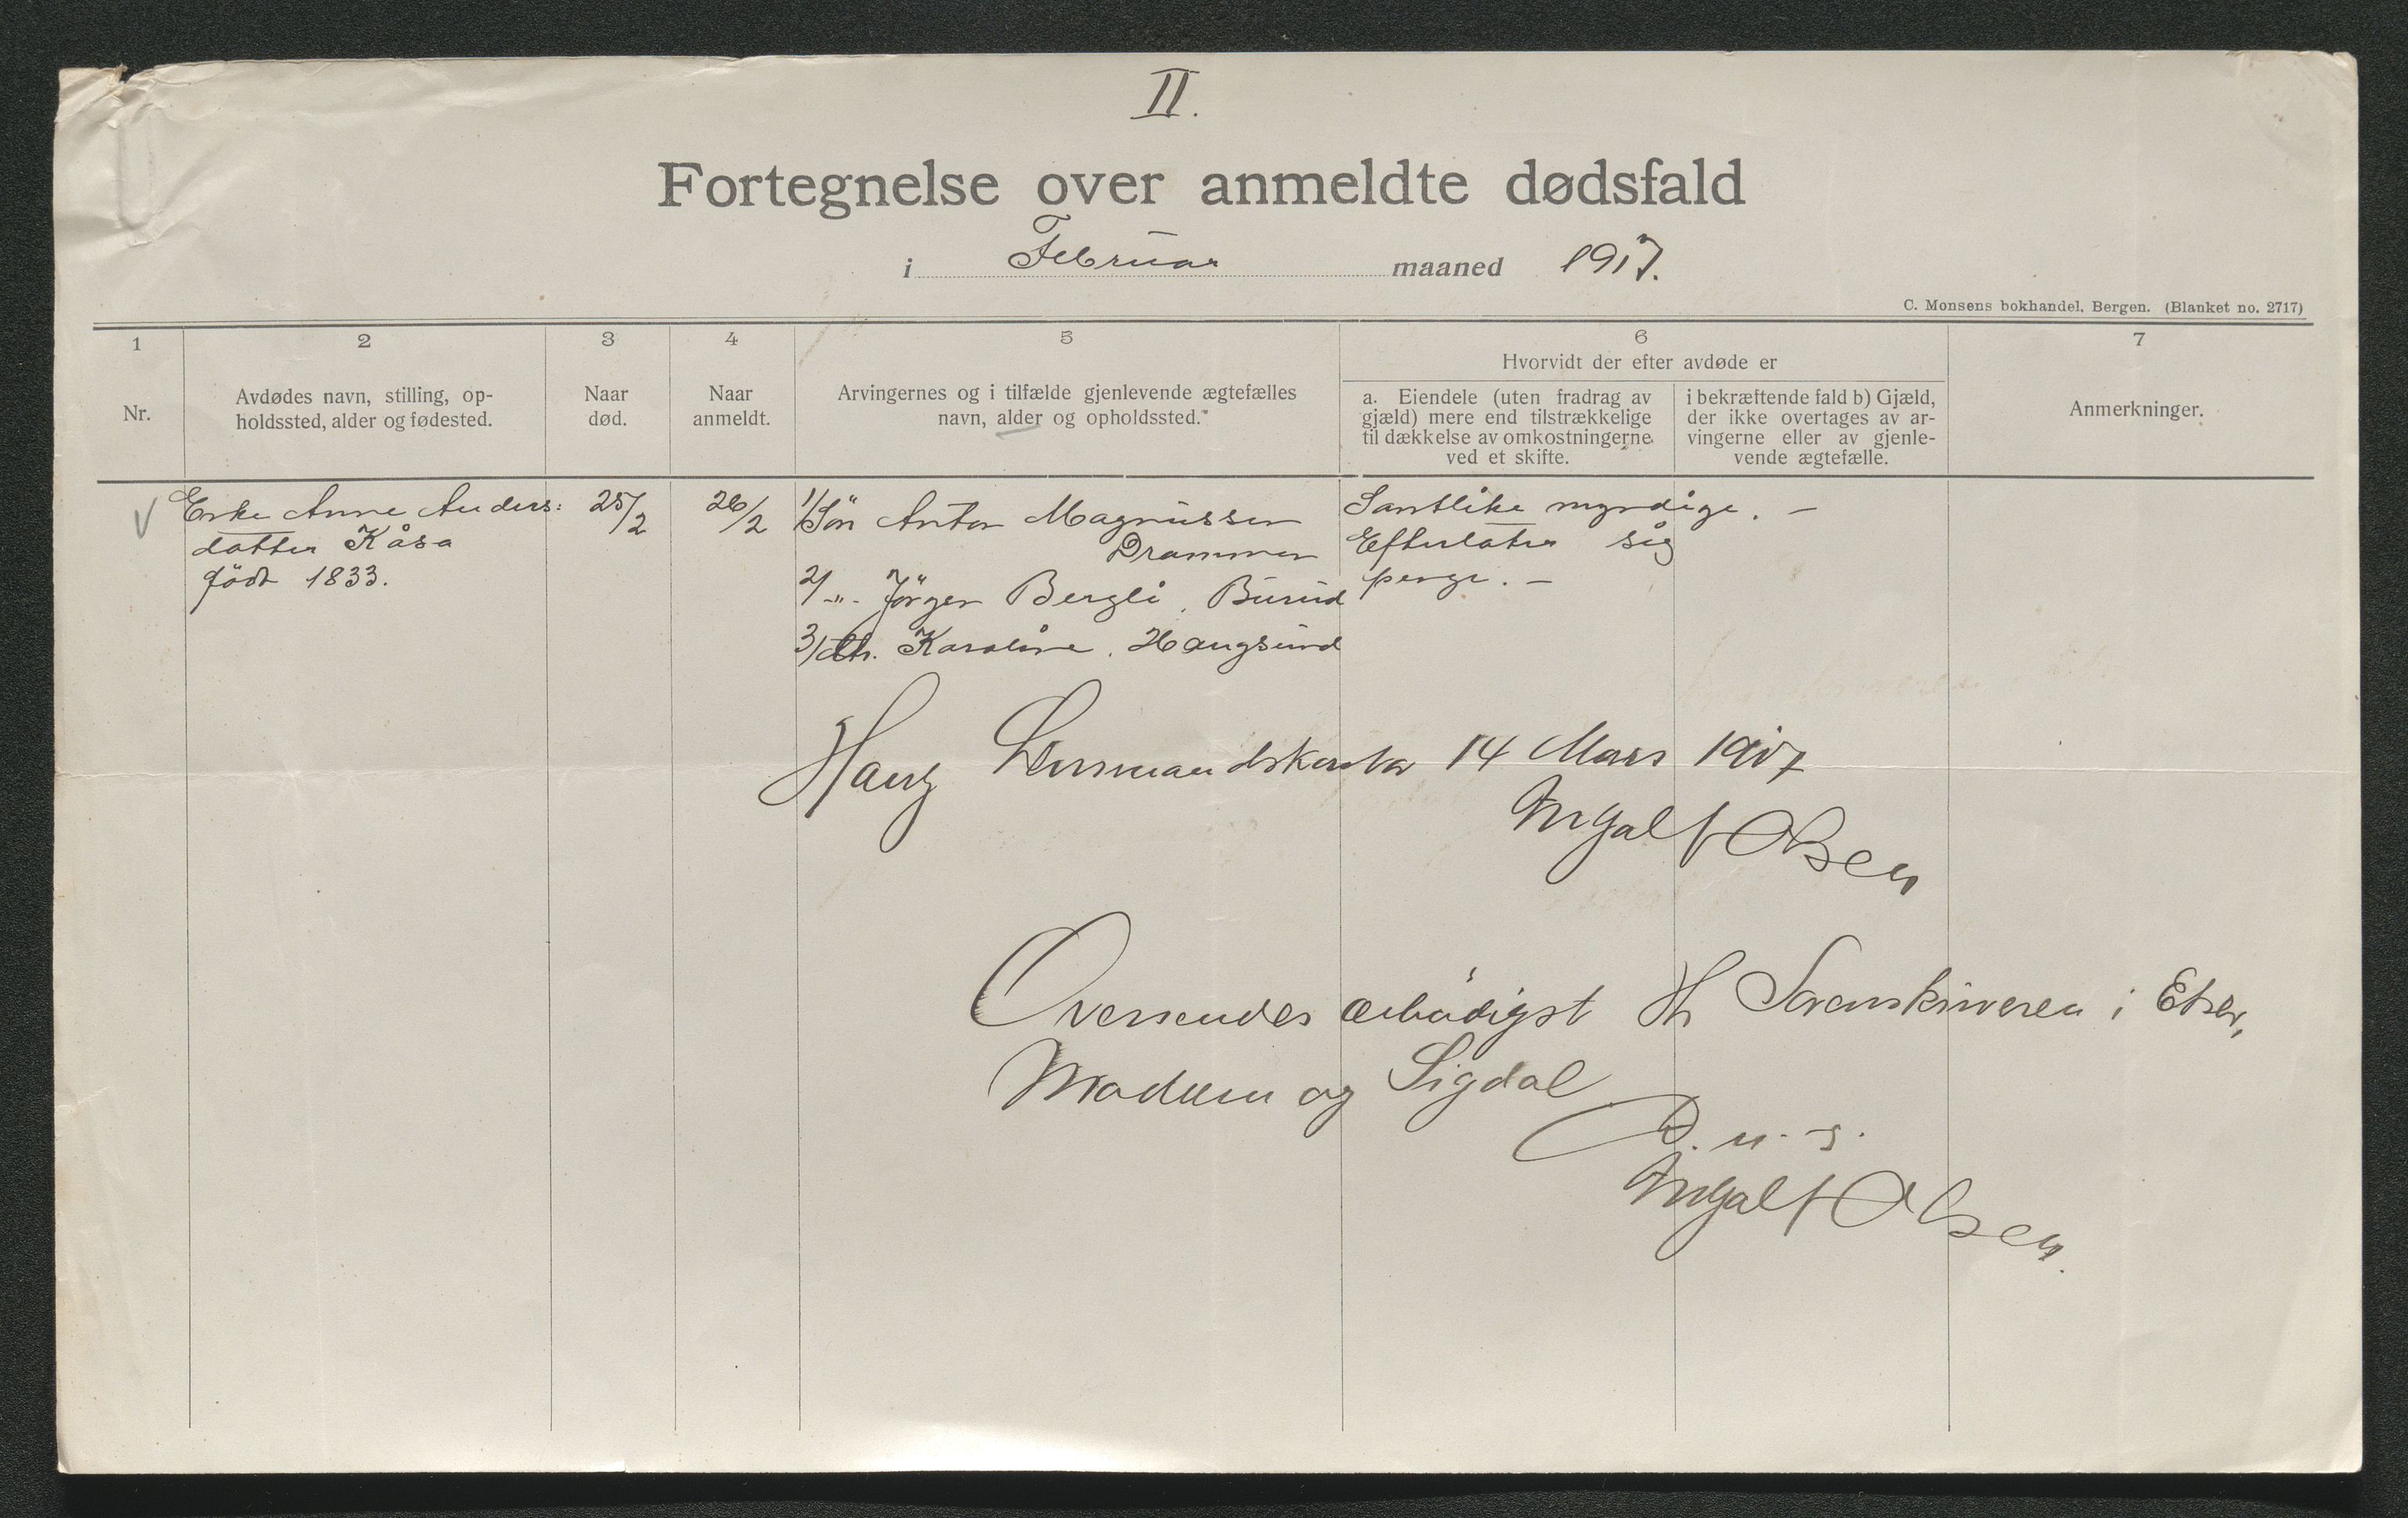 II.
Fortegnelse over anmeldte dødsfald
i Februar maaned 1917.
C. Monsens bokhandel, Bergen. (Blanket no. 2717)
1
Nr.
2
Avdødes navn, stilling, op-
holdssted, alder og fødested.
3
Naar
død.
4
Naar
anmeldt.
5
Arvingernes og i tilfælde gjenlevende ægtefælles
navn, alder og opholdssted.
6
Hvorvidt der efter avdøde er
a. Eiendele (uten fradrag av
gjæld) mere end tilstrækkelige
til dækkelse av omkostningerne
ved et skifte.
i bekræftende fald b) Gjæld,
der ikke overtages av ar-
vingerne eller av gjenle-
vende ægtefælle.
7
Anmerkninger.
Enke Anne Anders:
datter Kåsa
født 1833.
25/2
26/2
1/ Sön Anton Magnussen
Drammen
2/ -"- Jörgen Bergli, Burud
3/ dtr. Karoline, Haugsund
Samtlike myndige. -
Efterlater sig
penge. -
Haug Lensmandskontor 14 Mars 1917
Ingolf Olsen
Oversendes ærbödigst Hr Sorenskriveren i Eker,
Modum og Sigdal
D. u. s.
Ingolf Olsen.